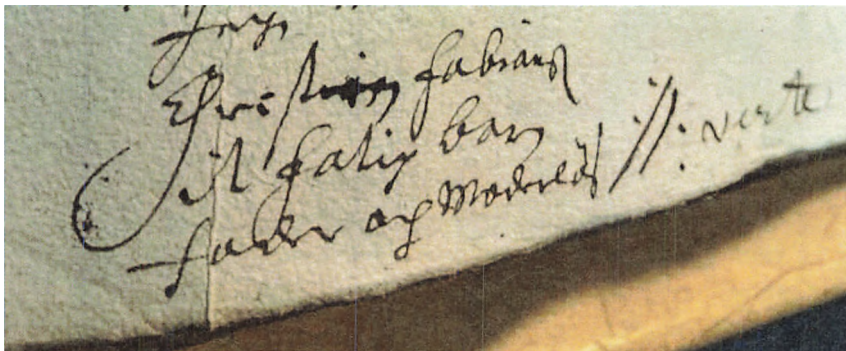 Christian Fabians
it fatig barn
fader og Moderløs //: verte